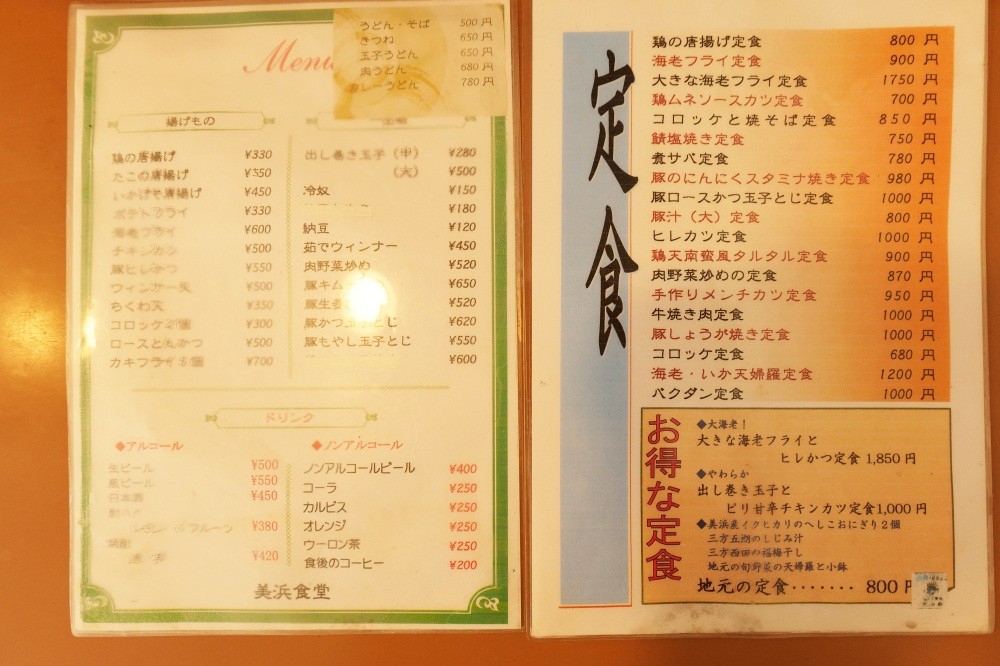 うどん・そば 500円
きつね 650円
玉子うどん 650円
肉うどん 680円
カレーうどん 780円
Menu
揚げもの
鶏の唐揚げ ¥330
たこの唐揚げ ¥350
いかげそ唐揚げ ¥450
ポテトフライ ¥330
海老フライ ¥600
チキンカツ ¥500
豚ヒレかつ ¥550
ウィンナー天 ¥500
ちくわ天 ¥350
コロッケ2個 ¥300
ロースとんかつ ¥500
カキフライ5個 ¥700
出し巻き玉子（中） ¥280
（大） ¥500
冷奴 ¥150
¥180
納豆 ¥120
茹でウィンナー ¥450
肉野菜炒め ¥520
豚キム ¥650
豚生姜 ¥520
豚かつ玉子とじ ¥620
豚もやし玉子とじ ¥550
¥600
ドリンク
◆アルコール
生ビール ¥500
瓶ビール ¥550
日本酒 ¥450
¥380
¥420
◆ノンアルコール
ノンアルコールビール ¥400
コーラ ¥250
カルピス ¥250
オレンジ ¥250
ウーロン茶 ¥250
食後のコーヒー ¥200
美浜食堂
定食
鶏の唐揚げ定食 800円
海老フライ定食 900円
大きな海老フライ定食 1750円
鶏ムネソースカツ定食 700円
コロッケと焼そば定食 850円
鯖塩焼き定食 750円
煮サバ定食 780円
豚のにんにくスタミナ焼き定食 980円
豚ロースかつ玉子とじ定食 1000円
豚汁（大）定食 800円
ヒレカツ定食 1000円
鶏天南蛮風タルタル定食 900円
肉野菜炒めの定食 870円
手作りメンチカツ定食 950円
牛焼き肉定食 1000円
豚しょうが焼き定食 1000円
コロッケ定食 680円
海老・いか天婦羅定食 1200円
バクダン定食 1000円
お得な定食
◆大海老！
大きな海老フライと
ヒレかつ定食 1,850円
◆やわらか
出し巻き玉子と
ピリ甘辛チキンカツ定食1,000円
◆美浜産イクヒカリのへしこおにぎり２個
三方五湖のしじみ汁
三方西田の福梅干し
地元の旬野菜の天婦羅と小鉢
地元の定食・・・・・・・ 800円